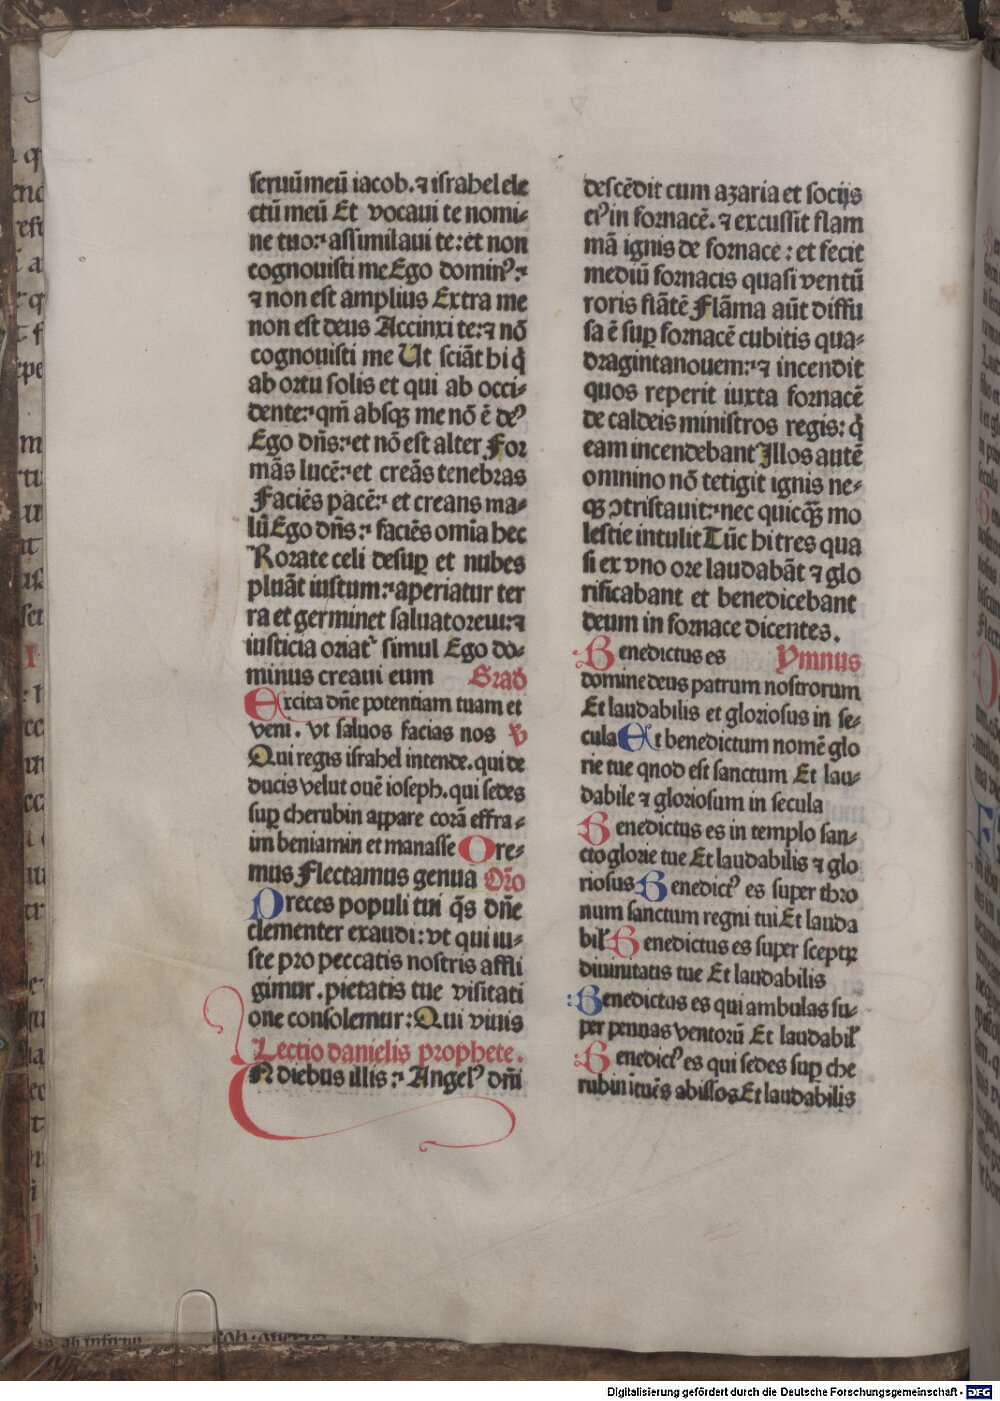 seruū meū iacob. ⁊ israhel ele
ctū meū Et vocaui te nomi-
ne tuo: assimilaui te: et non
cognouisti me Ego dominꝰ:
⁊ non est amplius Extra me
non est deus Accinxi te: ⁊ nō
cognouisti me Ut sciāt hi q̄
ab ortu solis et qui ab occi-
dente: qm̄ absqꝫ me nō ē deꝰ
Ego dn̄s: et nō est alter For
mās lucē: et creās tenebras
Faciēs pacē: et creans ma-
lū Ego dn̄s: faciēs omīa hec
Rorate celi desuꝑ et nubes
pluāt iustum: aperiatur ter
ra et germinet saluatorem: ⁊
iusticia oriat᷑ simul Ego do-
minus creaui eum Grad̄
Excita dn̄e potentiam tuam et
veni. vt saluos facias nos ℣
Qui regis israhel intende. qui de
ducis velut ouē ioseph. qui sedes
suꝑ cherubin appare corā effra-
im beniamin et manasse Ore-
mus Flectamus genua Or̄o
Preces populi tui q̄s dn̄e
clementer exaudi: vt qui iu-
ste pro peccatis nostris affli
gimur. pietatis tue visitati
one consolemur: Qui viuis
Lectio danielis prophete.
IN diebus illis: Angelꝰ dn̄i
descēdit cum azaria et socijs
eiꝰ in fornacē. ⁊ excussit flam
mā ignis de fornace: et fecit
mediū fornacis quasi ventū
roris flātē Flāma aūt diffu
sa ē suꝑ fornacē cubitis qua-
dragintanouem: ⁊ incendit
quos reperit iuxta fornacē
de caldeis ministros regis: q̄
eam incendebant Illos autē
omnino nō tetigit ignis ne-
qꝫ ꝯtristauit: nec quicq̄ꝫ mo
lestie intulit Tūc hi tres qua
si ex vno ore laudabāt ⁊ glo
rificabant et benedicebant
deum in fornace dicentes.
Benedictus es Ymnus
domine deus patrum nostrorum
Et laudabilis et gloriosus in se-
cula Et benedictum nomē glo
rie tue qnod est sanctum Et lau-
dabile ⁊ gloriosum in secula
Benedictus es in templo san-
cto glorie tue Et laudabilis ⁊ glo
riosus Benedictꝰ es super thro
num sanctum regni tui Et lauda
bil᷑ Benedictus es super sceptꝝ
diuinitatis tue Et laudabilis
Benedictus es qui ambulas su-
per pennas ventorū Et laudabil᷑
Benedictꝰ es qui sedes suꝑ che
rubin ītuēs abissos Et laudabilis
Digitalisierung gefördert durch die Deutsche Forschungsgemeinschaft - DFG